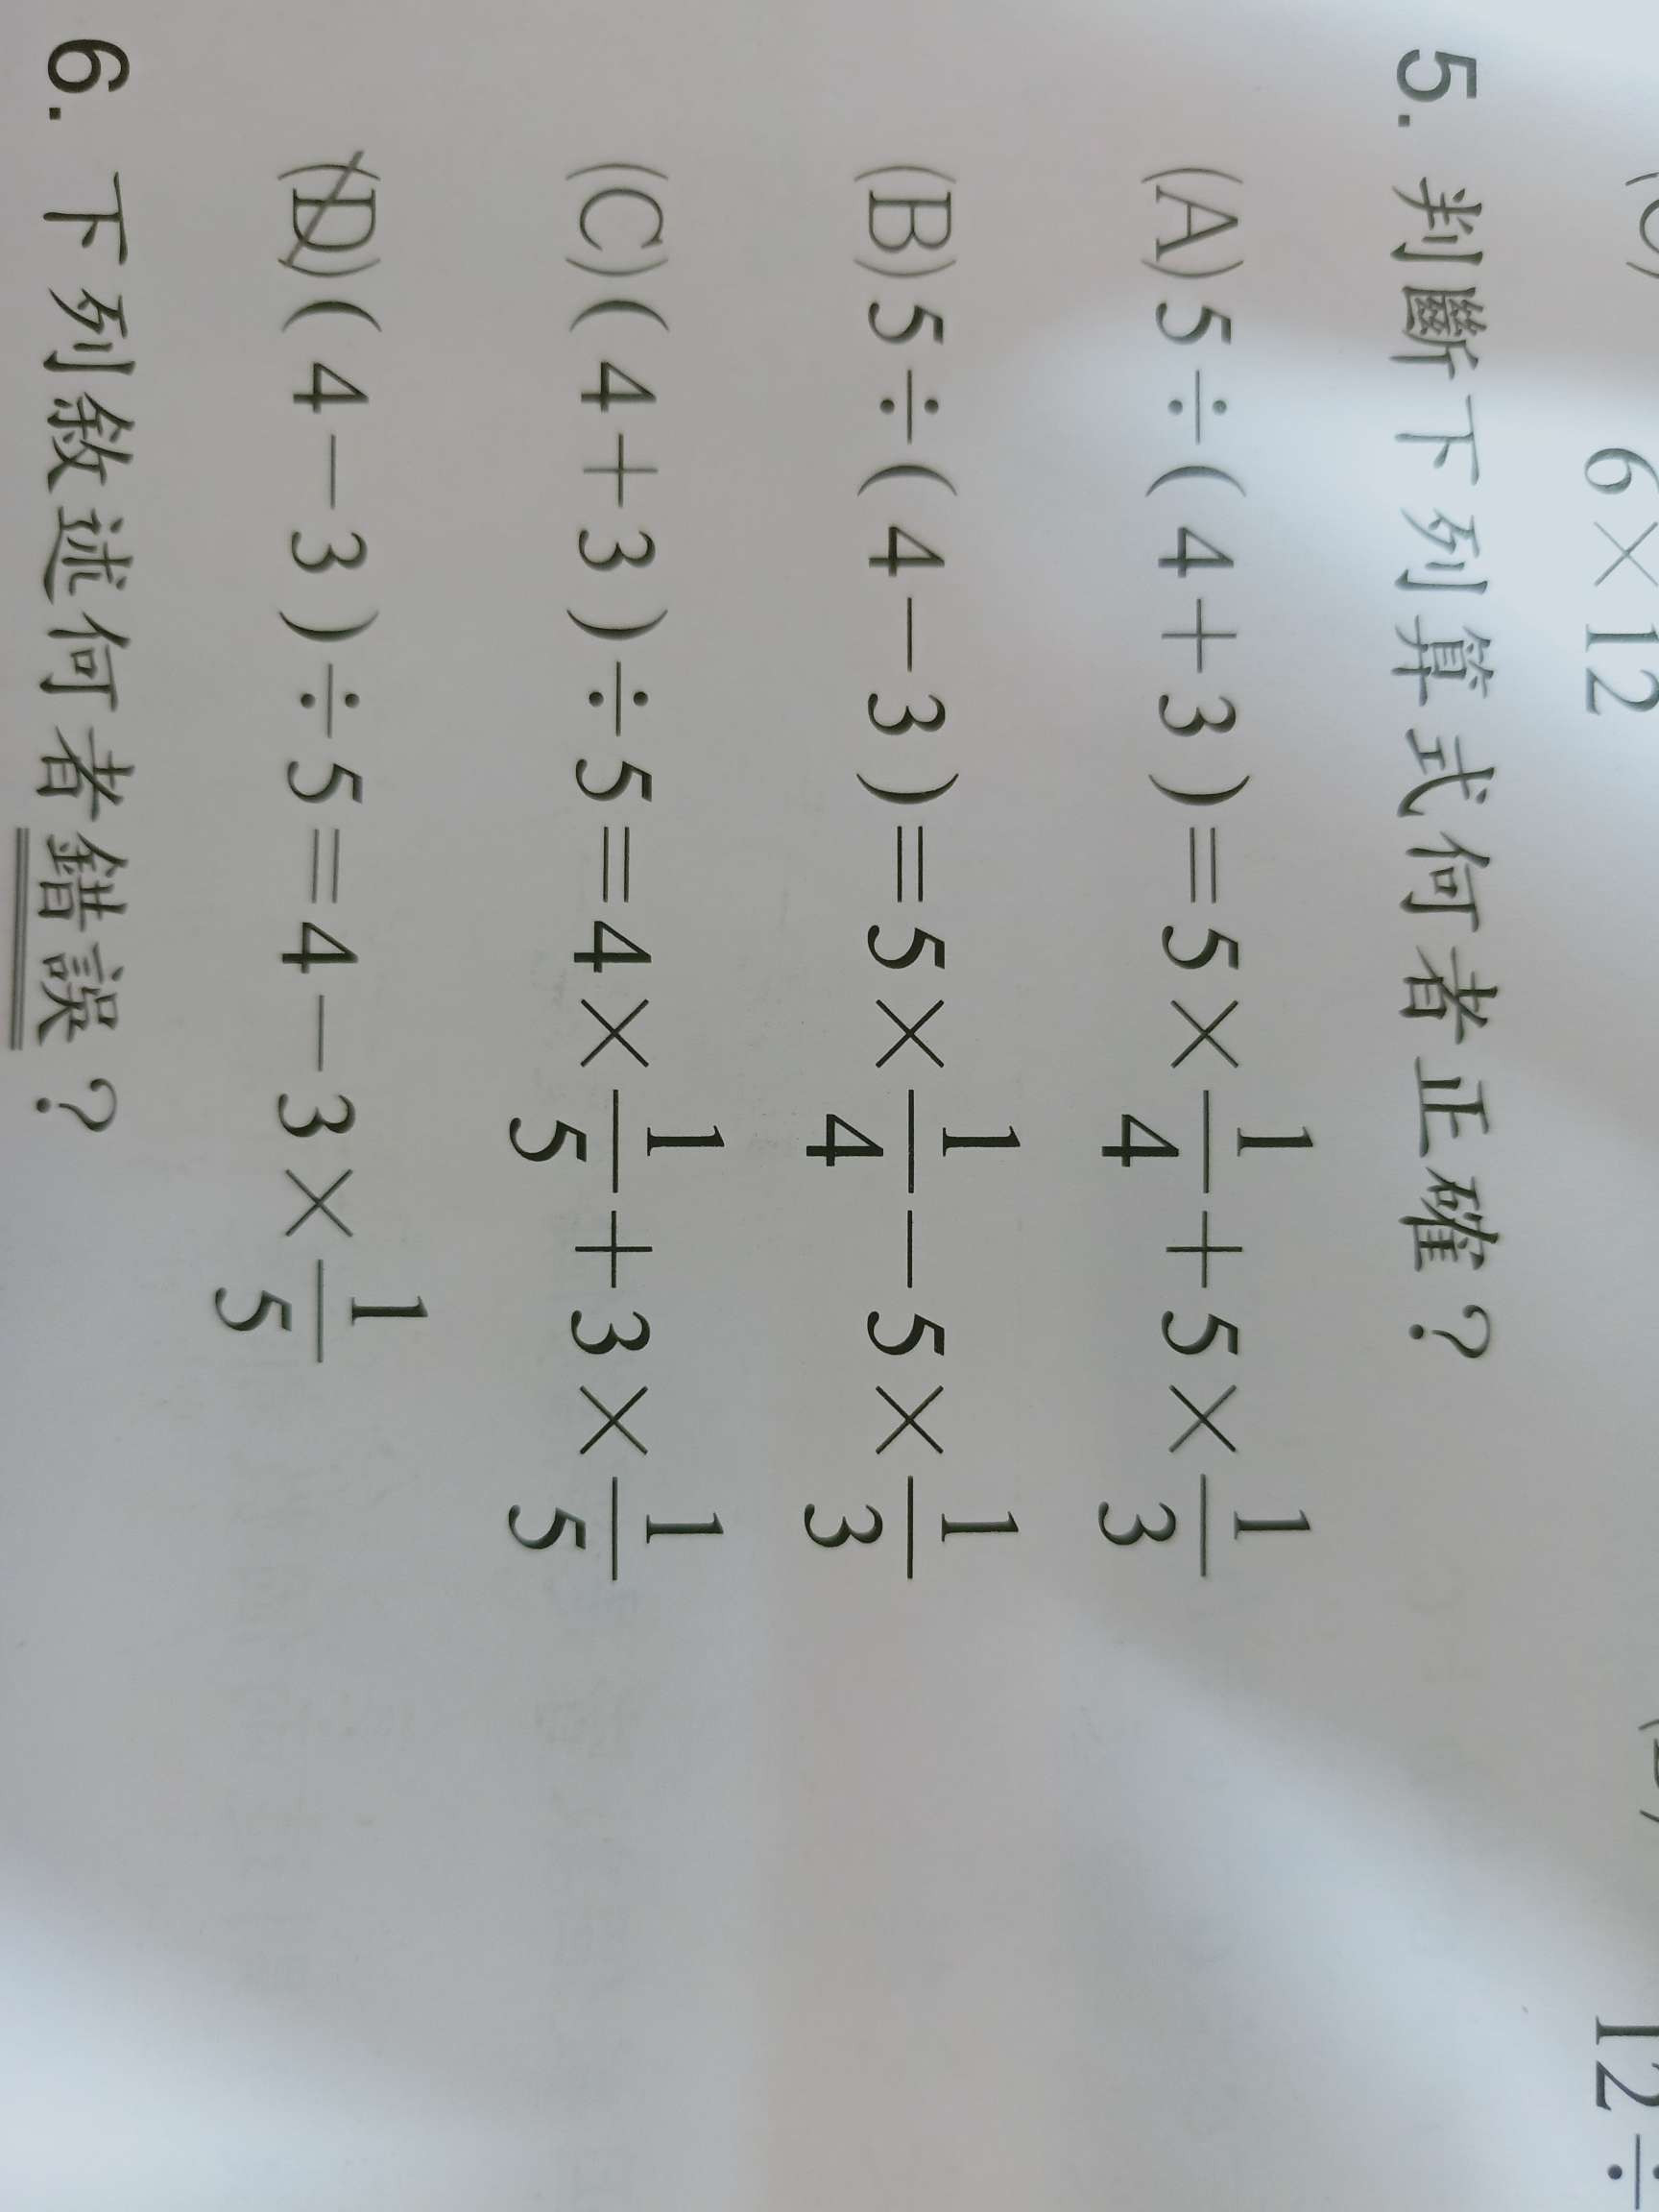 6×12
12÷
5. 判斷下列算式何者正確？
(A) 5÷(4+3)=5×1/4+5×1/3
(B) 5÷(4-3)=5×1/4-5×1/3
(C) (4+3)÷5=4×1/5+3×1/5
(D) (4-3)÷5=4-3×1/5
6. 下列敘述何者錯誤？